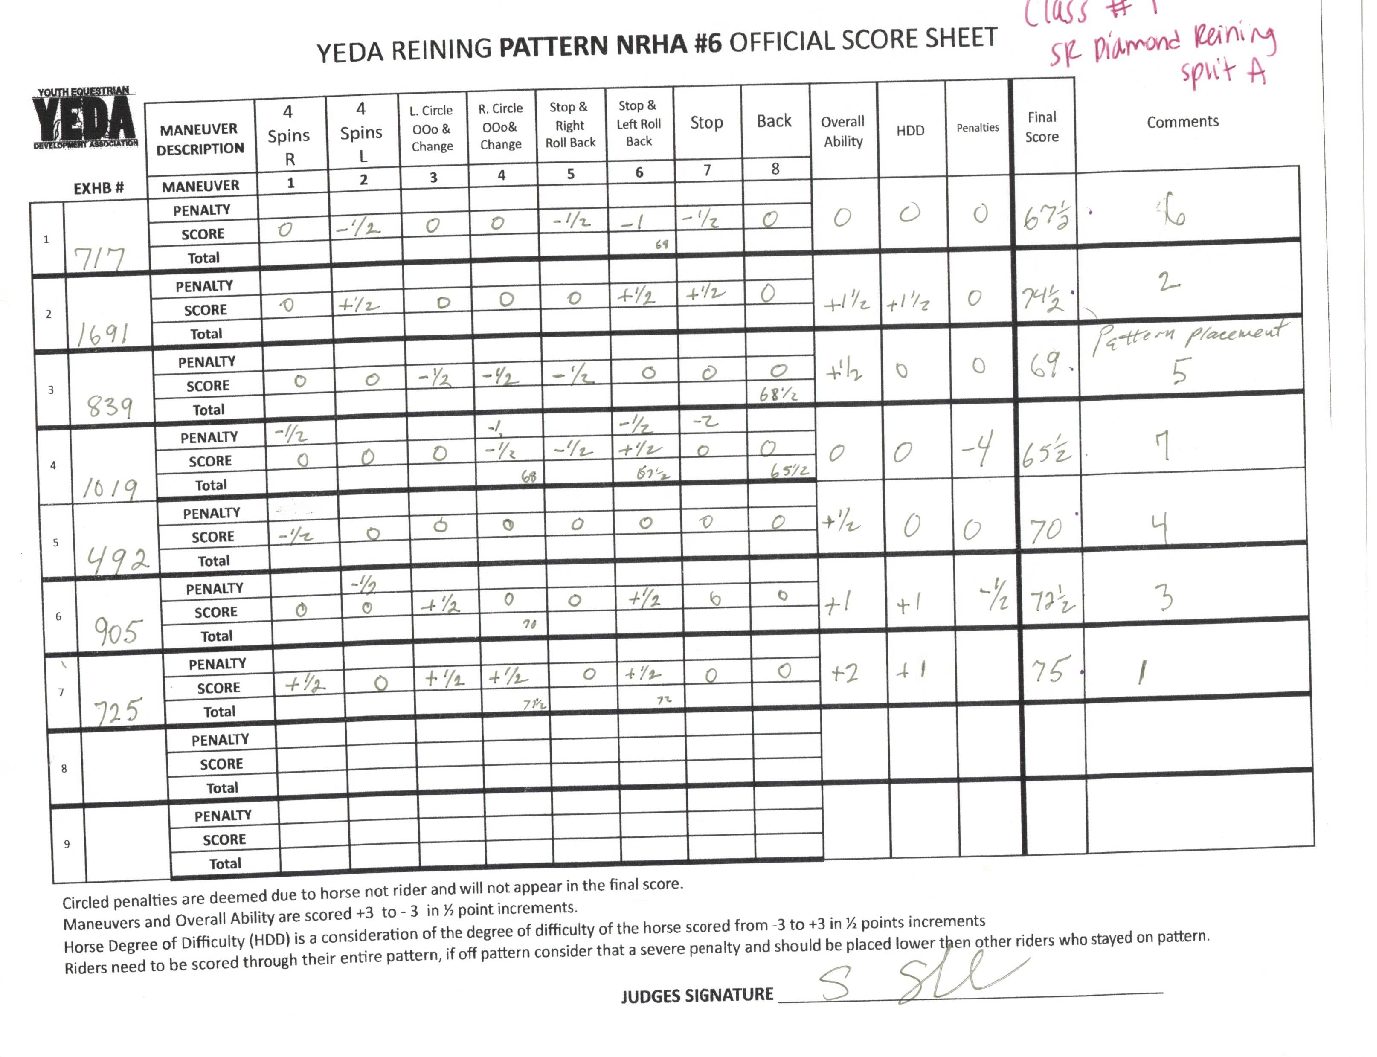 Class # 1
SR Diamond Reining
split A
YEDA REINING PATTERN NRHA #6 OFFICIAL SCORE SHEET
YOUTH EQUESTRIAN
YEDA
DEVELOPMENT ASSOCIATION
MANEUVER DESCRIPTION 4 Spins R 4 Spins L L. Circle OOo & Change R. Circle OOo& Change Stop & Right Roll Back Stop & Left Roll Back Stop Back Overall Ability HDD Penalties Final Score Comments
EXHB # MANEUVER 1 2 3 4 5 6 7 8
PENALTY
1 717 SCORE 0 -1/2 0 0 -1/2 -1 -1/2 0 0 0 0 67½ 6
Total 69
PENALTY
2 1691 SCORE 0 +1/2 0 0 0 +1/2 +1/2 0 +1½ +1½ 0 74½ 2
Total
PENALTY Pattern placement
3 839 SCORE 0 0 -1/2 -1/2 -1/2 0 0 0 +1/2 0 0 69 5
Total 68½
PENALTY -1/2 -1 -1/2 -2
4 1019 SCORE 0 0 0 -1/2 -1/2 +1/2 0 0 0 0 -4 65½ 7
Total 68 67½ 65½
PENALTY
5 492 SCORE -1/2 0 0 0 0 0 0 0 +1/2 0 0 70 4
Total
PENALTY -1/2
6 905 SCORE 0 0 +1/2 0 0 +1/2 0 0 +1 +1 -1/2 72½ 3
Total 70
PENALTY
7 725 SCORE +1/2 0 +1/2 +1/2 0 +1/2 0 0 +2 +1 75 1
Total 71½ 72
PENALTY
8 SCORE
Total
PENALTY
9 SCORE
Total
Circled penalties are deemed due to horse not rider and will not appear in the final score.
Maneuvers and Overall Ability are scored +3 to - 3 in ½ point increments.
Horse Degree of Difficulty (HDD) is a consideration of the degree of difficulty of the horse scored from -3 to +3 in ½ points increments
Riders need to be scored through their entire pattern, if off pattern consider that a severe penalty and should be placed lower then other riders who stayed on pattern.
JUDGES SIGNATURE